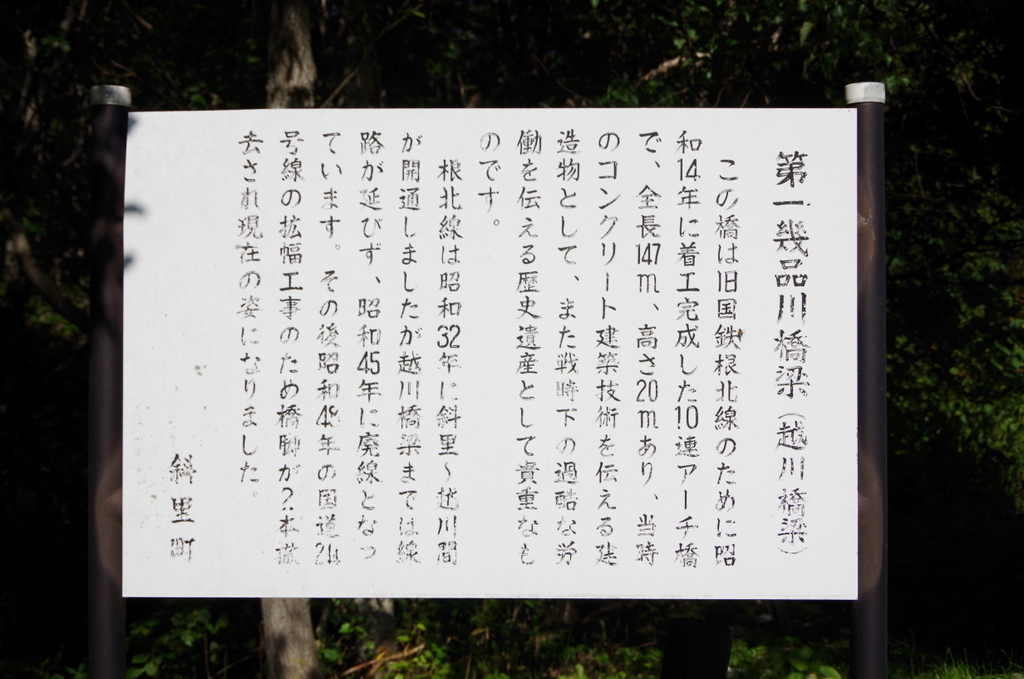 第一幾品川橋梁(越川橋梁)
この橋は旧国鉄根北線のために昭
和14年に着工完成した10連アーチ橋
で、全長147m、高さ20mあり、当時
のコンクリート建築技術を伝える建
造物として、また戦時下の過酷な労
働を伝える歴史遺産として貴重なも
のです。
根北線は昭和32年に斜里~越川間
が開通しましたが越川橋梁までは線
路が延びず、昭和45年に廃線となっ
ています。その後昭和48年の国道244
号線の拡幅工事のため橋脚が2本撤
去され現在の姿になりました。
斜里町